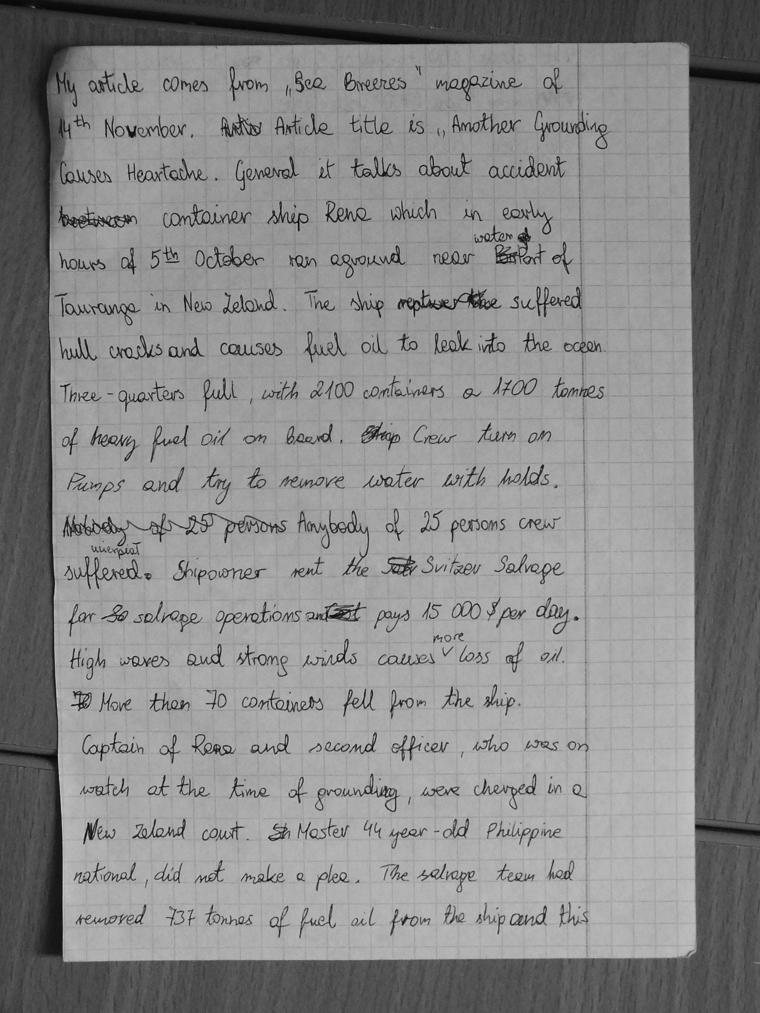 My article comes from „Sea Breezes" magazine of
14th November. Article title is „Another Grounding
Causes Heartache. General it talks about accident
container ship Rena which in early
water
hours of 5th October ran aground near Port of
Tauranga in New Zeland. The ship suffered
hull cracks and causes fuel oil to leak into the ocean.
Three-quarters full, with 2100 containers a 1700 tonnes
of heavy fuel oil on board. Crew turn on
Pumps and try to remove water with holds.
Nobody of 25 persons Anybody of 25 persons crew
suffered. Shipowner rent the Svitzer Salvage
for salvage operations pays 15 000 $ per day.
more
High waves and strong winds causes loss of oil.
More than 70 containers fell from the ship.
Captain of Rena and second officer, who was on
watch at the time of grounding, were charged in a
New Zeland court. Master 44 year-old Philippine
national, did not make a plea. The salvage team had
removed 737 tonnes of fuel oil from the ship and this